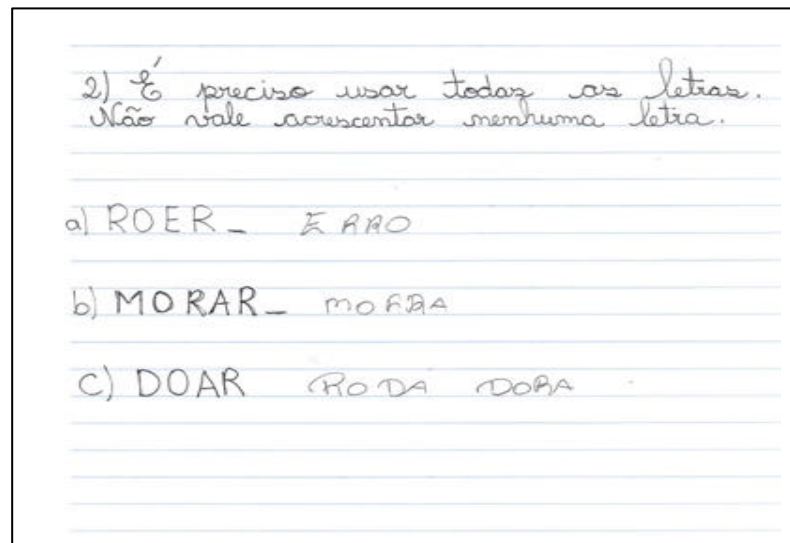 2) É preciso usar todas as letras.
Não vale acrescentar nenhuma letra.
a) ROER_ ERRO
b) MORAR_ MORRA
C) DOAR RODA DORA